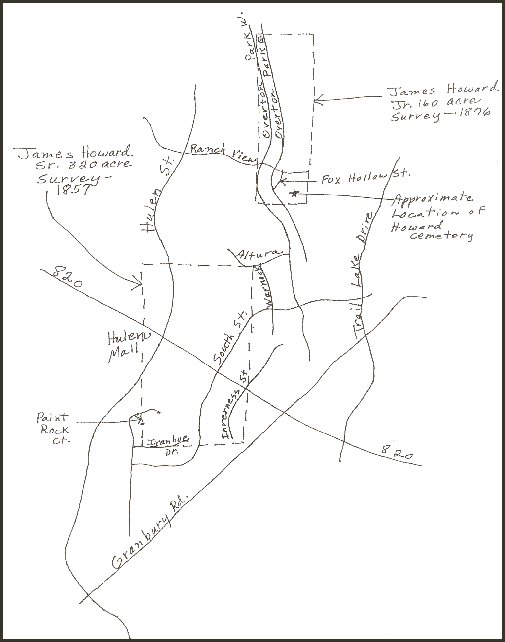 Park W.
Overton Park E
Overton Park
James Howard
Jr. 160 acre
Survey - 1876
Ranch View
Fox Hollow St.
James Howard
Sr. 320 acre
Survey -
1857
Hulen St.
Approximate
Location of
Howard
Cemetery
Trail Lake Drive
Altura
820
Hulen
Mall
South St.
Inverness St.
Paint
Rock
Ct.
Ivanhoe
Dr.
820
Granbury Rd.